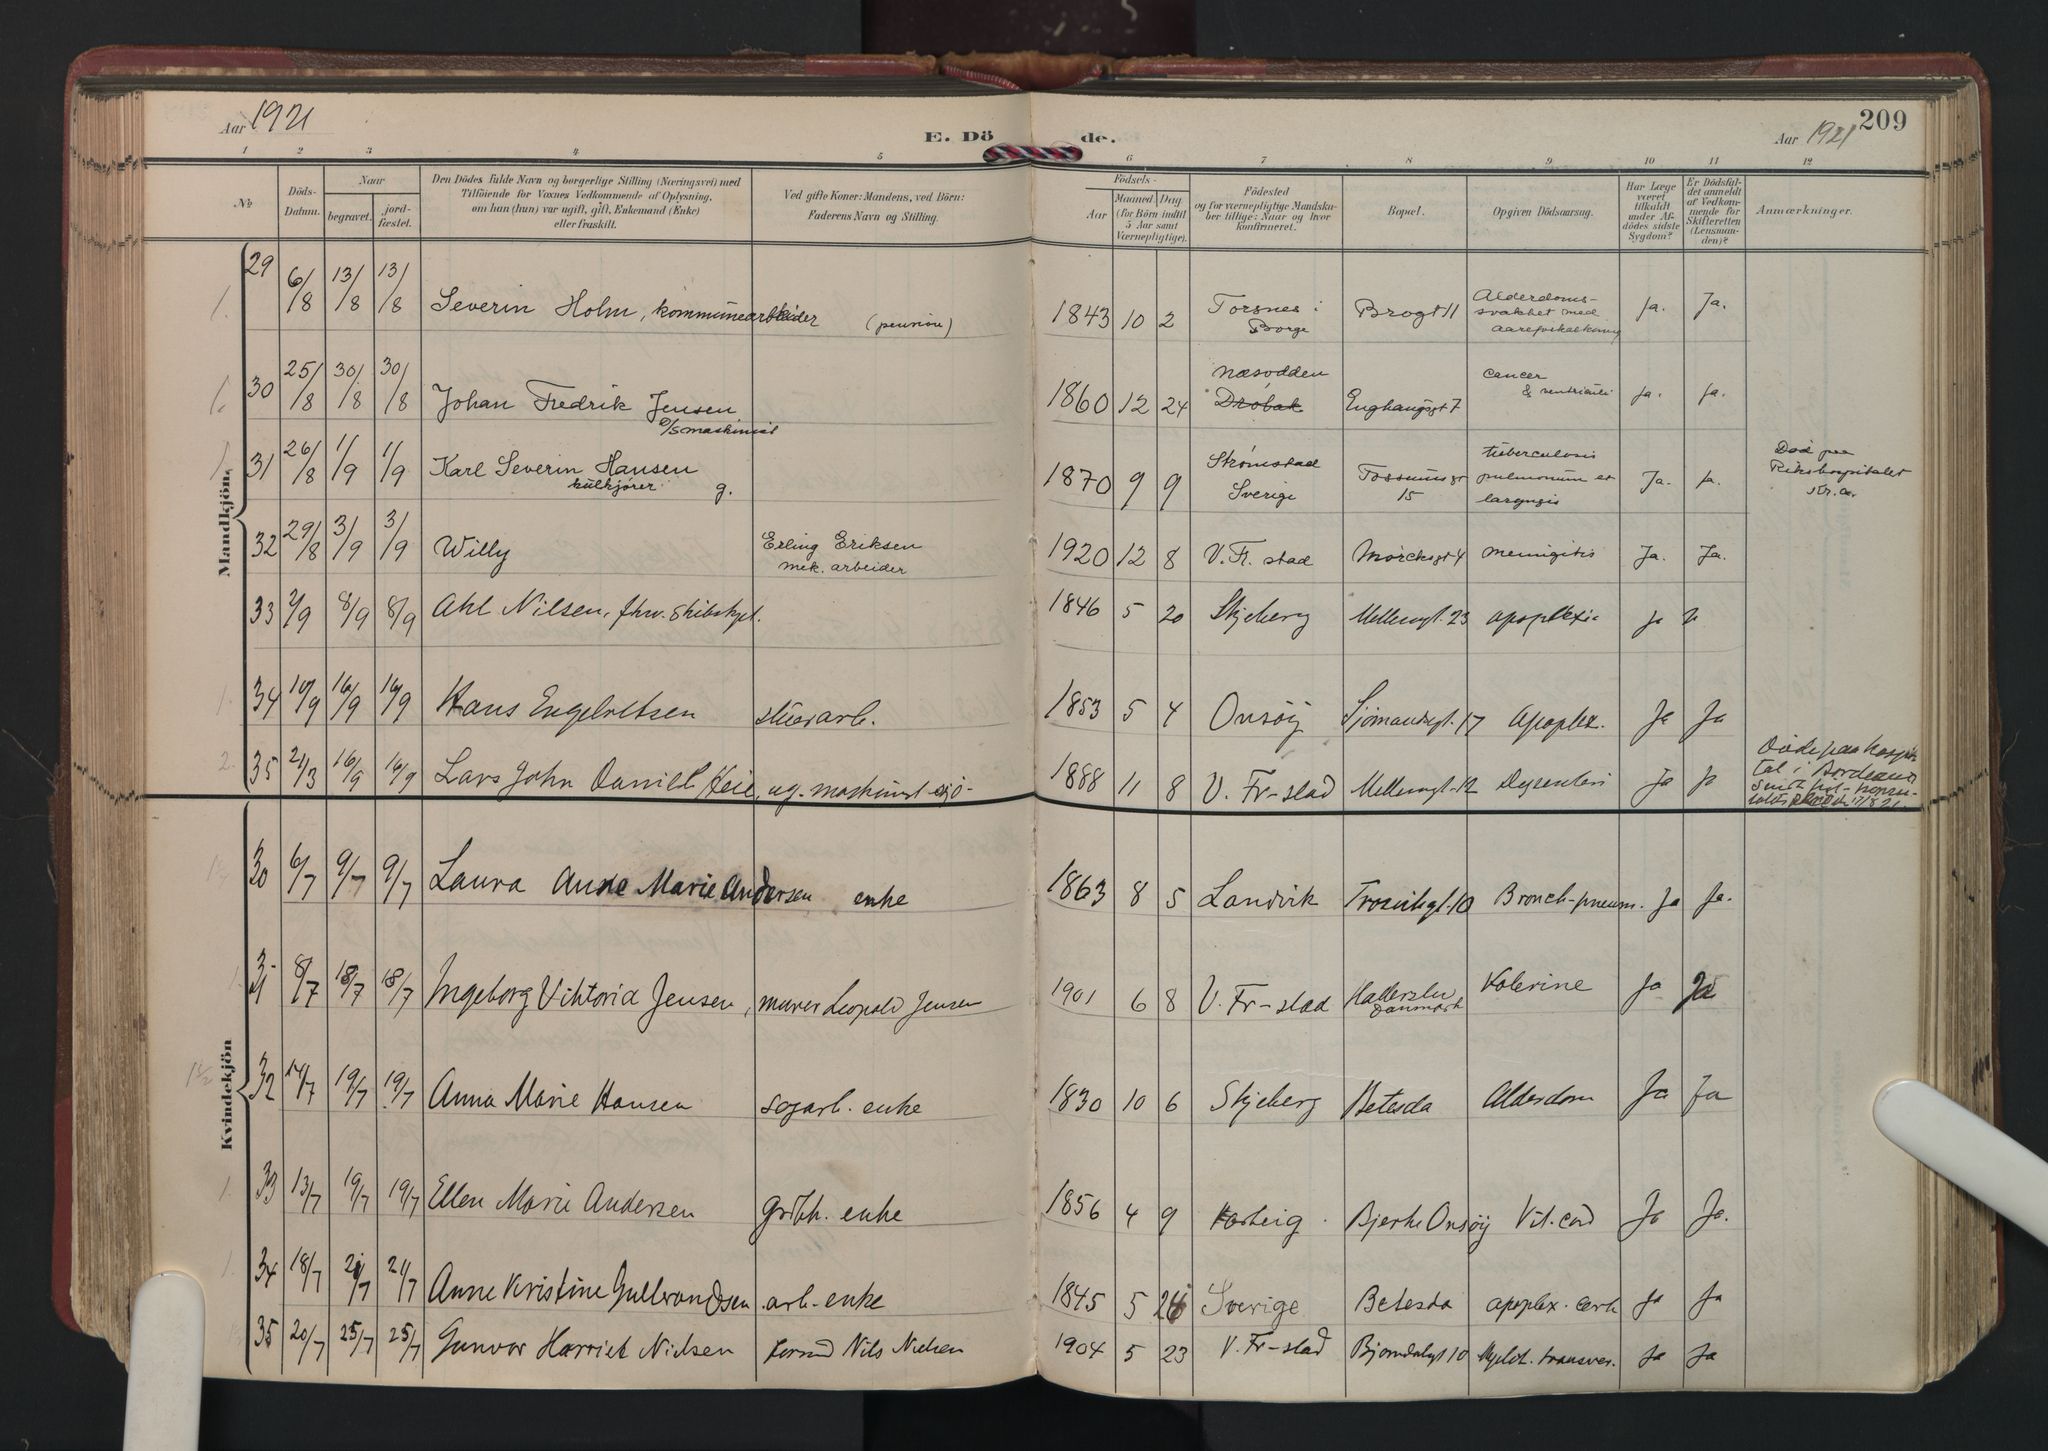 Aar 1921
E. Döde.
Aar 1921
209
1 2 3 4 5 6 7 8 9 10 11 12
No
Döds-Datum.
Naar
begravet.
jord-fæstet.
Den Dödes fulde Navn og borgerlige Stilling (Næringsvei) med
Tilföiende for Voxnes Vedkommende af Oplysning,
om han (hun) var ugift, gift, Enkemand (Enke)
eller fraskilt.
Ved gifte Koner: Mandens, ved Börn:
Faderens Navn og Stilling.
Födsels-
Aar
Maaned Dag
(for Börn indtil
5 Aar samt
Værnepligtige).
Födested
og for værnepligtige Mandsku-
ber tillige: Naar og hvor
konfirmeret.
Bopæl.
Opgiven Dödsaarsag.
Har Læge
været
tilkaldt
under Af-
dödes sidste
Sygdom?
Er Dödsfal-
det anmeldt
af Vedkom-
mende for
Skifteretten
(Lensman-
den)?
Anmærkninger.
Mandkjön.
29 6/8 13/8 13/8 Severin Holm, kommunearbeider (pension) 1843 10 2 Torsnes i Borge Brogt 11 Alderdoms-svakhet med Ja. Ja.
30 25/8 30/8 30/8 Johan Fredrik Jensen D/S maskinist 1860 12 24 Næsodden Drøbak Enghaugsgt 7 cancer ventriculi Ja. Ja.
31 26/8 1/9 1/9 Karl Severin Hansen kulkjører g. 1870 9 9 Strømstad Sverige Tossumsgt 15 tuberculosis pulmonum et laryngis Ja. Ja. Død paa Rikshospitalet Kr.a.
32 29/8 3/9 3/9 Willy Erling Eriksen mek. arbeider 1920 12 8 V. Fr. stad Mørcksgt 4 meningitis Ja. Ja.
33 2/9 8/9 8/9 Nilsen, fhv. skibskpt. 1846 5 20 Skjeberg Mellemgt. 23 apoplexie Ja
34 10/9 16/9 16/9 Hans Engebretsen stuerarb. 1853 5 4 Onsøy Sjømandsgt. 17 Apoplex. Ja Ja
35 21/3 16/9 16/9 Lars John Daniel Heie, ug. maskinist 1888 11 8 V. Fr-stad Mellemgt. 12 Dysenteri Ja Ja Døde paa hospital i Bordeaux
Kvindekjön
30 6/7 9/7 9/7 Laura Anne Marie Andersen enke 1863 8 5 Landvik Trosvikgt. 10 Bronch-pneum. Ja Ja.
31 8/7 18/7 18/7 Ingeborg Viktoria Jensen, murer Leopold Jensen 1901 6 8 V. Fr-stad Haderslev Danmark Kolerine Ja Ja
32 14/7 19/7 19/7 Anna Marie Hansen sagarb. enke 1830 10 6 Skjeberg Betesda Alderdom Ja Ja
33 13/7 19/7 19/7 Ellen Marie Andersen enke 1856 4 9 Varteig Bjerke Onsøy Vit. cord Ja Ja.
34 18/7 21/7 21/7 Anne Kristine Gulbrandsen arb. enke 1845 5 Sverige Betesda apoplex. cerb Ja Ja
35 20/7 25/7 25/7 Gunvor Harriet Nielsen Nils Nielsen 1904 5 23 V. Fr-stad Bjørndalsgt 10 Myelit. transver. Ja Ja